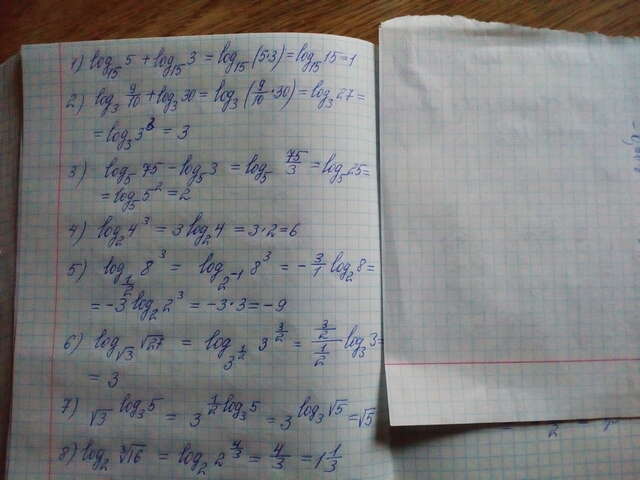 1) log₁₅ 5 + log₁₅ 3 = log₁₅ (5·3) = log₁₅ 15 = 1
2) log₃ 9/10 + log₃ 30 = log₃ (9/10 · 30) = log₃ 27 =
= log₃ 3³ = 3
3) log₅ 75 - log₅ 3 = log₅ 75/3 = log₅ 25 =
= log₅ 5² = 2
4) log₂ 4³ = 3 log₂ 4 = 3·2 = 6
5) log_(1/2) 8³ = log_(2⁻¹) 8³ = -3/1 log₂ 8 =
= -3 log₂ 2³ = -3·3 = -9
6) log_(√3) √27 = log_(3^(1/2)) 3^(3/2) = (3/2)/(1/2) log₃ 3 =
= 3
7) √3^(log₃ 5) = 3^(1/2 log₃ 5) = 3^(log₃ √5) = √5
8) log₂ ∛16 = log₂ 2^(4/3) = 4/3 = 1 1/3